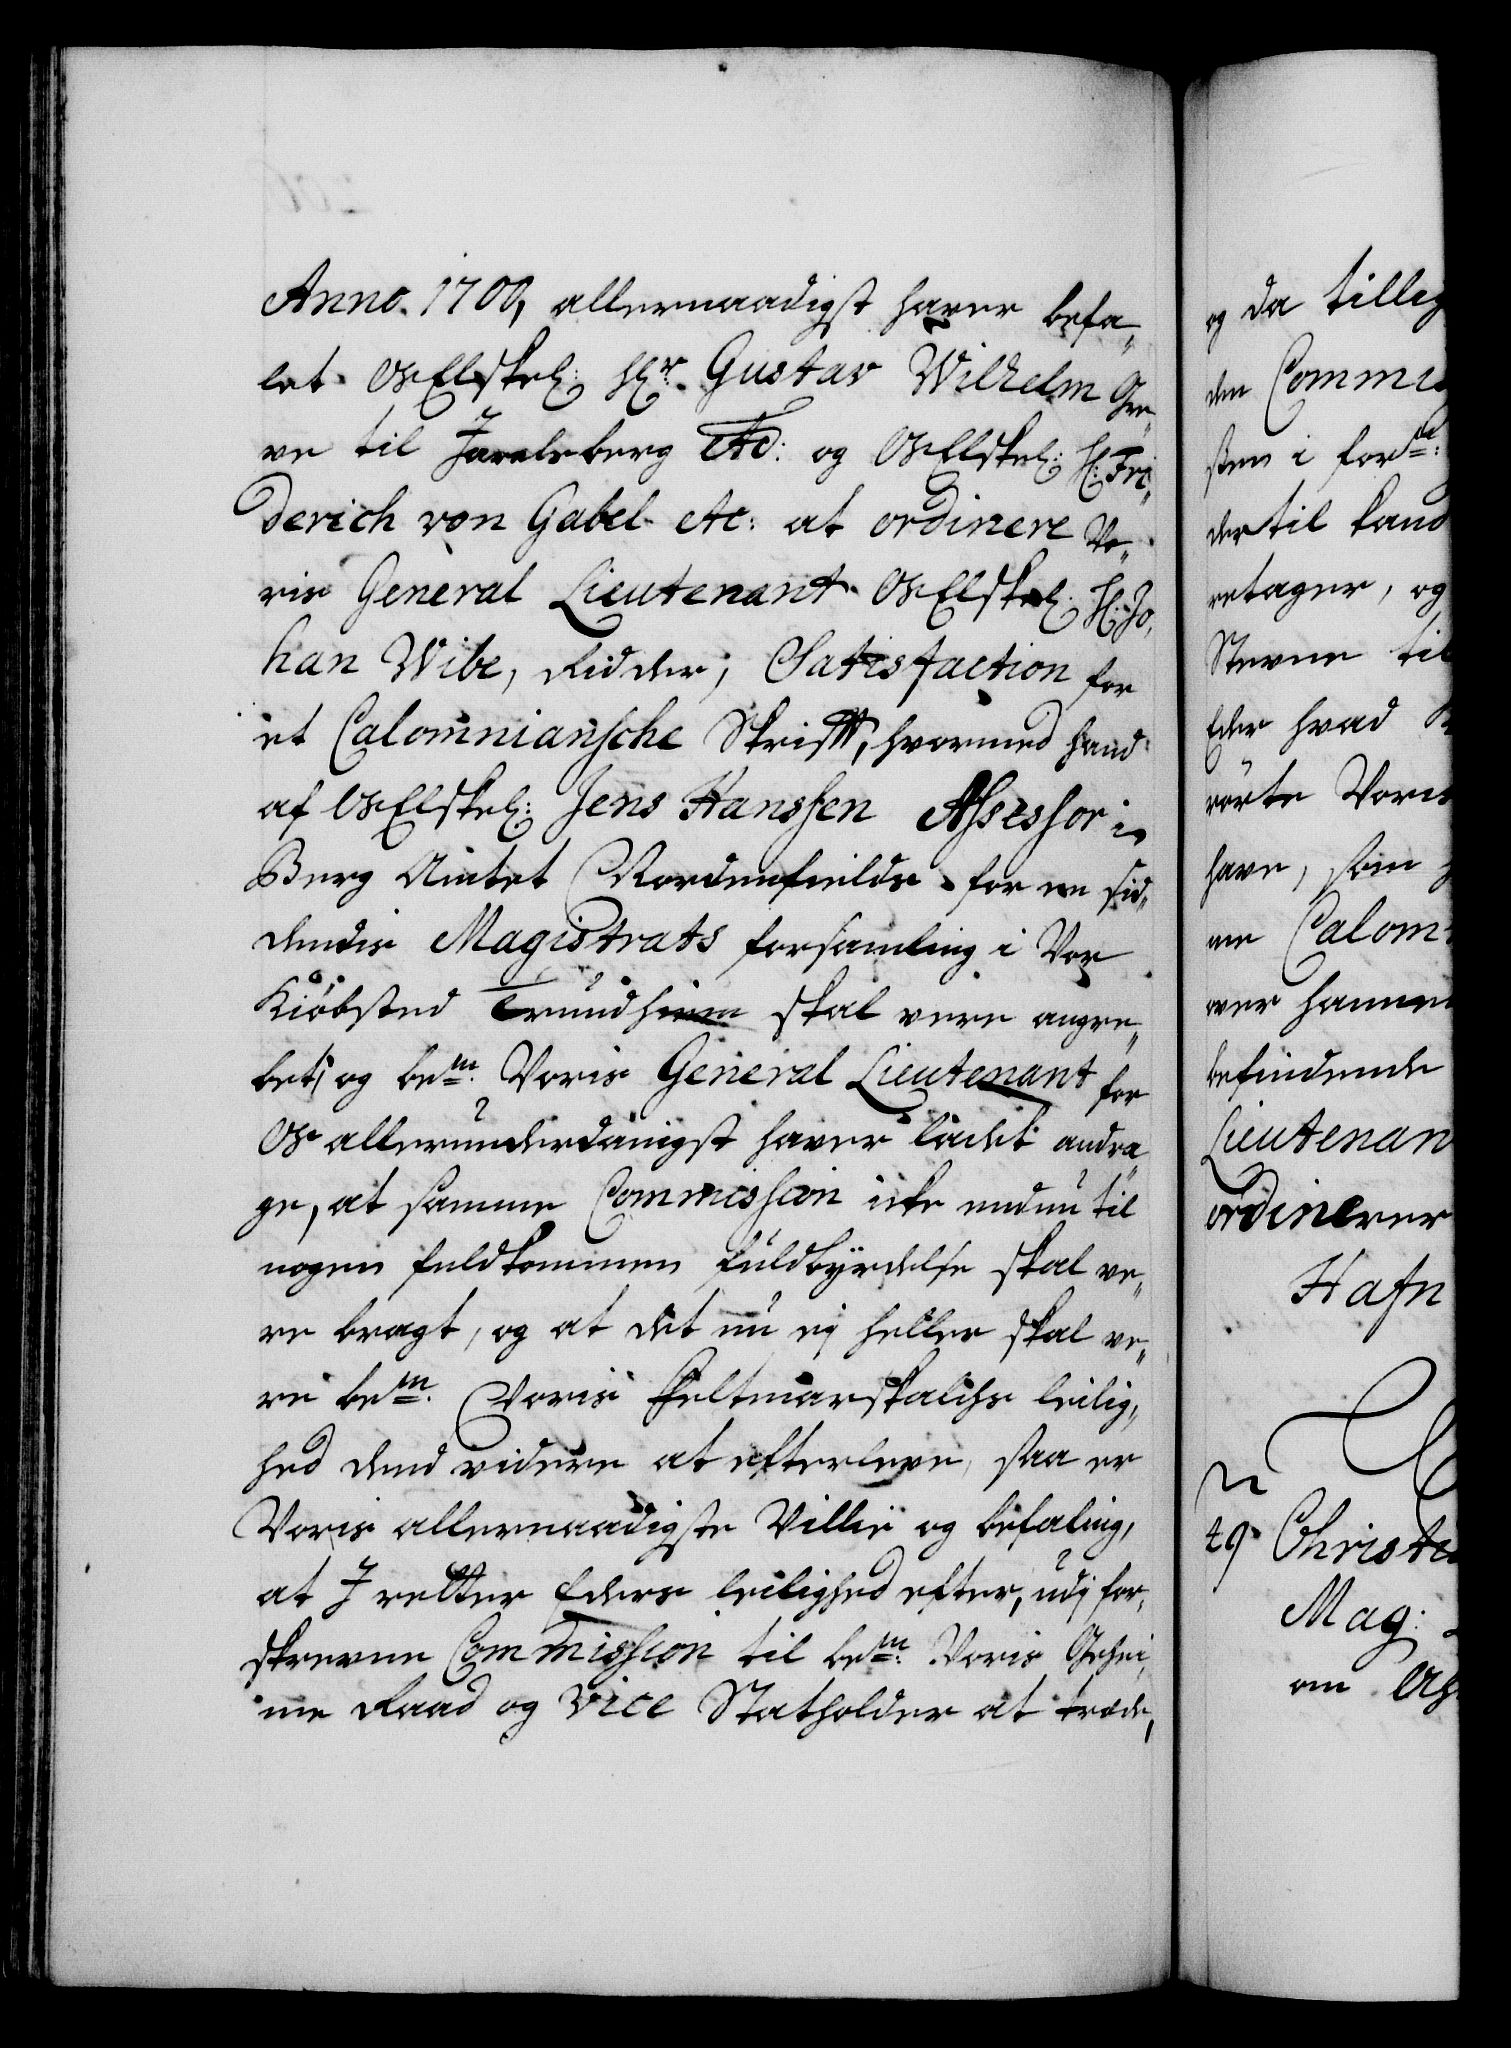 Anno. 1700, allernaadigst haver befa„
let Os Elskel: Hr. Gustav Wilhelm Gre„
ve til Jarelsberg etc: og Os Elskel: H: Fri„
derich von Gabel etc: at ordinere Vo„
ris General Lieutenant Os Elskel: H: Jo„
han Wibe, Ridder, Satisfaction for
et Calomniansche Skrifft, hvormed hand
af Os Elskel: Jens Hanssen Assessor i
Berg Amtet Nordenfields for en sid„
dendis Magistrats forsamling i Vor
Kiöbsted Trundhiem skal vere angre„
bet, og bem.te Voris General Lieutenant for
Os allerunderdanigst haver ladet andra„
ge, at samme Commission icke endnu til
nogen fuldkommen fuldbyrdelse skal ve„
re bragt, og at det nu ej heller skal ve„
re bem.te Voris Feltmarskalchs leilig„
hed dend videre at efterleve, saa er
Voris allernaadigste Villie og befaling,
at I retter Eders leilighed efter, udj for„
skrevne Commission til bem.te Voris Gehei„
me Raad og Vice Statholder at træde,
og da tilleg
den Commis
sten i for.ne:
dertil kand
retager, og
Stevne til
Eder hvad
rörte Voris
have, som
me Calom
over hannem
befindende
Lieutenan
ordinerer
Hafn
49 Christi
Mag:
om